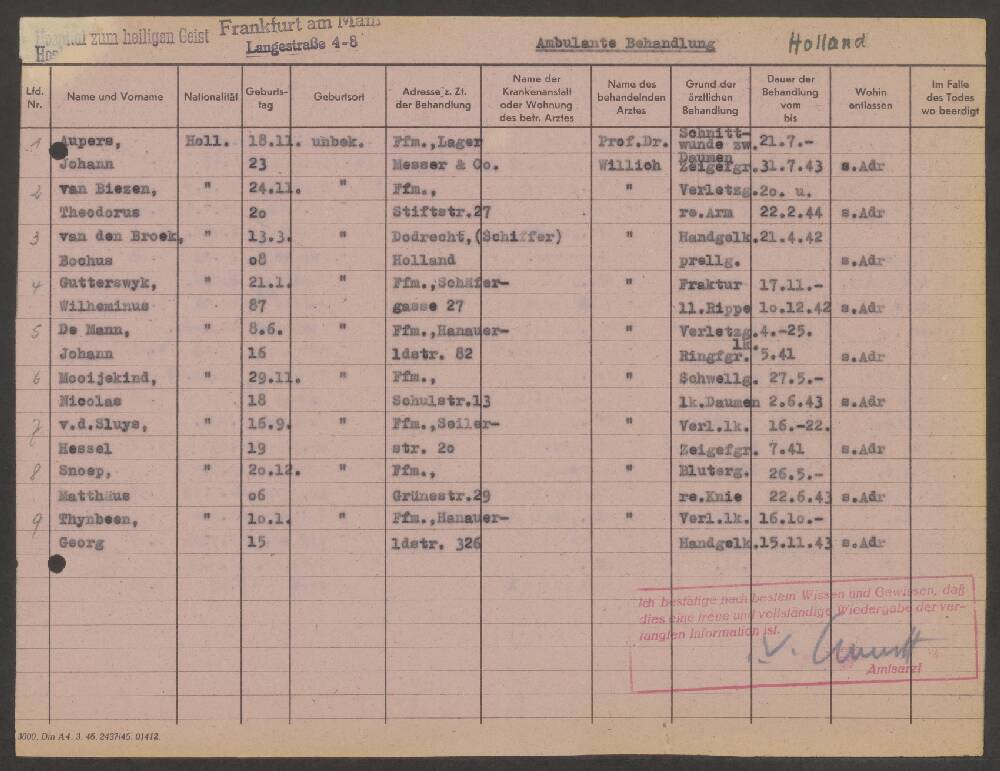 Hospital zum heiligen Geist Frankfurt am Main
Langestraße 4-8
Ambulante Behandlung Holland
Lfd. Nr. Name und Vorname Nationalität Geburts-tag Geburtsort Adresse z. Zt. der Behandlung Name der Krankenanstalt oder Wohnung des betr. Arztes Name des behandelnden Arztes Grund der ärztlichen Behandlung Dauer der Behandlung vom bis Wohin entlassen Im Falle des Todes wo beerdigt
1 Aupers, Holl. 18.11. unbek. Ffm.,Lager Prof.Dr. Schnitt-wunde zw. 21.7.-
Johann 23 Messer & Co. Willich Daumen Zeigefgr. 31.7.43 s.Adr
2 van Biezen, " 24.11. " Ffm., " Verletzg. 2o. u.
Theodorus 2o Stiftstr.27 re.Arm 22.2.44 s.Adr
3 van den Broek, " 13.3. " Dodrecht,(Schiffer) " Handgelk. 21.4.42
Bochus o8 Holland prellg. s.Adr
4 Gutterswyk, " 21.1. " Ffm.,Schäfer- " Fraktur 17.11.-
Wilheminus 87 gasse 27 11.Rippe 1o.12.42 s.Adr
5 De Mann, " 8.6. " Ffm.,Hanauer- " Verletzg. 4.-25.
Johann 16 ldstr. 82 lk. Ringfgr. 5.41 s.Adr
6 Mooijekind, " 29.11. " Ffm., " Schwellg. 27.5.-
Nicolas 18 Schulstr.13 lk.Daumen 2.6.43 s.Adr
7 v.d.Sluys, " 16.9. " Ffm.,Seiler- " Verl.lk. 16.-22.
Hessel 19 str. 2o Zeigefgr. 7.41 s.Adr
8 Snoep, " 2o.12. " Ffm., " Bluterg. 26.5.-
Matthäus o6 Grünestr.29 re.Knie 22.6.43 s.Adr
9 Thynbeen, " 1o.1. " Ffm.,Hanauer- " Verl.lk. 16.1o.-
Georg 15 ldstr. 326 Handgelk. 15.11.43 s.Adr
Ich bestätige nach bestem Wissen und Gewissen, daß
dies eine treue und vollständige Wiedergabe der ver-
langten Information ist.
Amtsarzt
3000. Din A4. 3. 46. 2437/45. 01412.